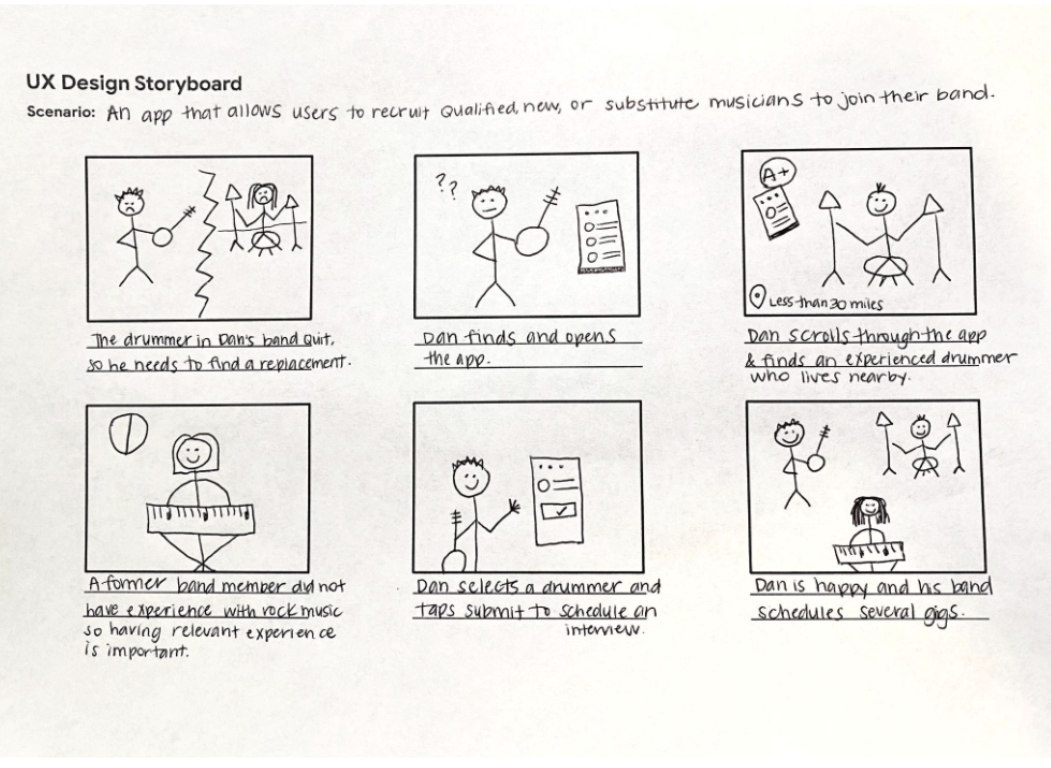 UX Design Storyboard
Scenario: An app that allows users to recruit qualified, new, or substitute musicians to join their band.
The drummer in Dan's band quit,
so he needs to find a replacement.
??
Dan finds and opens
the app.
A+
Less than 30 miles
Dan scrolls through the app
& finds an experienced drummer
who lives nearby.
A former band member did not
have experience with rock music
so having relevant experience
is important.
Dan selects a drummer and
taps submit to schedule an
interview.
Dan is happy and his band
schedules several gigs.